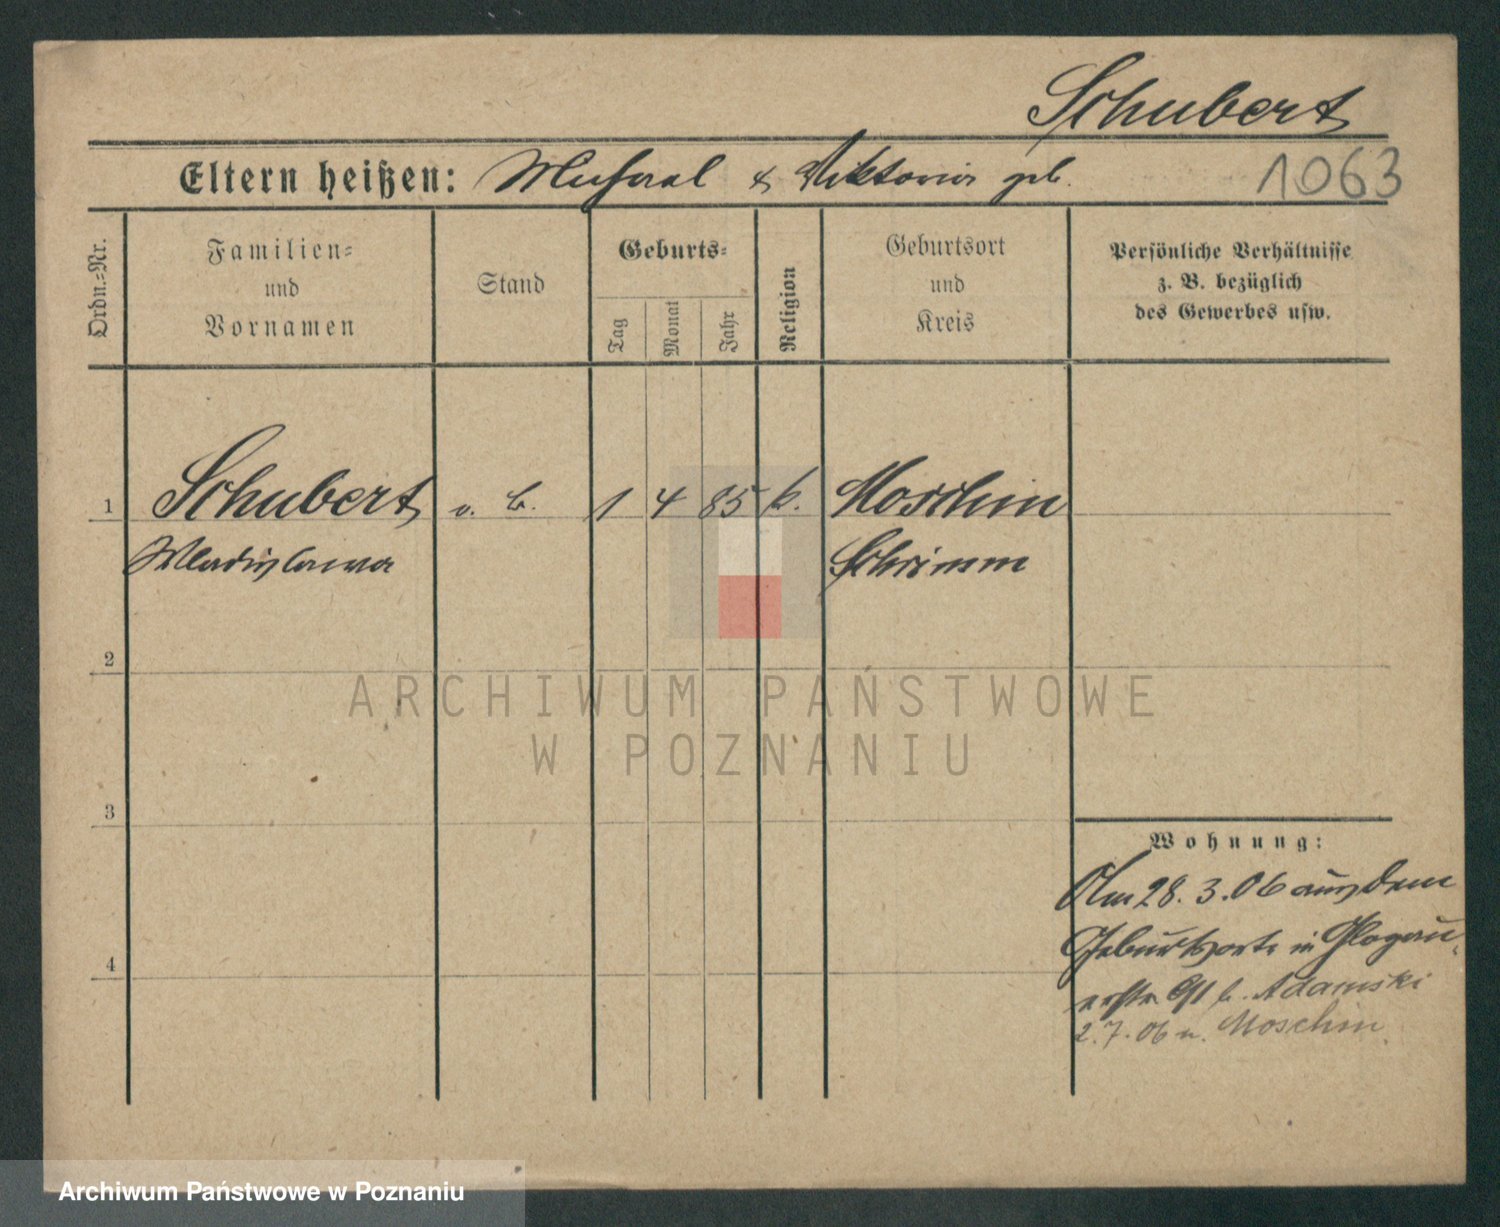 Schubert
Eltern heißen: Michael & Viktoria geb.
1063
Ordn.-Nr.
Familien-
und
Vornamen
Stand
Geburts-
Tag
Monat
Jahr
Religion
Geburtsort
und
Kreis
Persönliche Verhältnisse
z. B. bezüglich
des Gewerbes usw.
1 Schubert o. B. 1 4 85 k. Moschin
Wladislawa Schrimm
2
ARCHIWUM PAŃSTWOWE
W POZNANIU
3
Wohnung:
Am 28.3.06 aus dem
Geburtsorte in Glogau-
4
b. Adamski
2.7.06 n. Moschin.
Archiwum Państwowe w Poznaniu